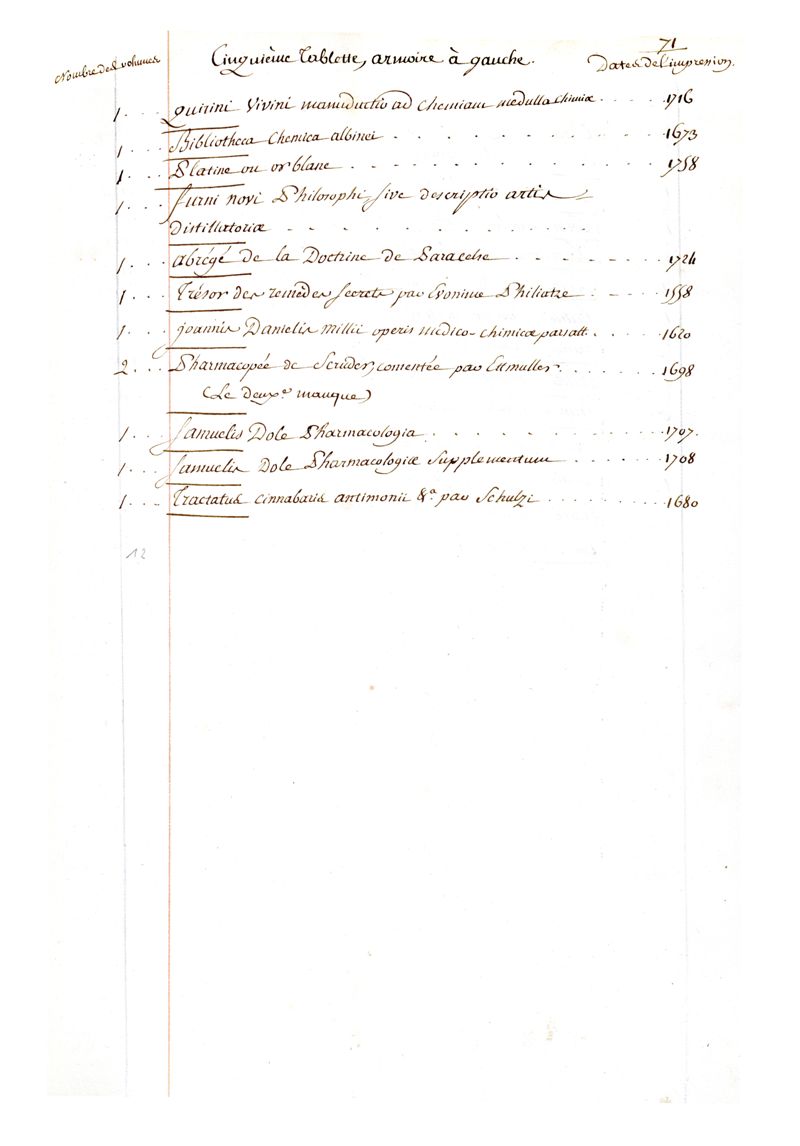 71
Nombre des volumes
Cinquième Tablette, armoire à gauche.
Dates de l'impression.
1 . . . Quirini Vivini manuductio ad Chemiam medulla chimiæ . . . . . 1716
1 . . . Bibliotheca Chemica albinei . . . . . . . . . 1673
1 . . . Platine ou or blanc . . . . . . . . . . 1758
1 . . . furni novi Philosophi, sive descriptio artis
Distillatoriæ . . . . . . . . .
1 . . . abrégé de la Doctrine de Paracelse . . . . . . . 1724
1 . . . Trésor des remèdes secrets par Evonime Philiatre . . . . 1558
1 . . . joannis Danielis Millii operis medico-chimicæ pars alt. . . . . . 1620
2 . . . Pharmacopée de Scruder, comentée par Etmuller . . . . . . 1698
(Le deuxe. manque)
1 . . . Samuelis Dole Pharmacologia . . . . . . . . 1707.
1 . . . Samuelis Dole Pharmacologiæ Supplementum . . . . . 1708
1 . . . Tractatus cinnabaris antimonii &a. par Schulzi . . . . . . . . 1680
12